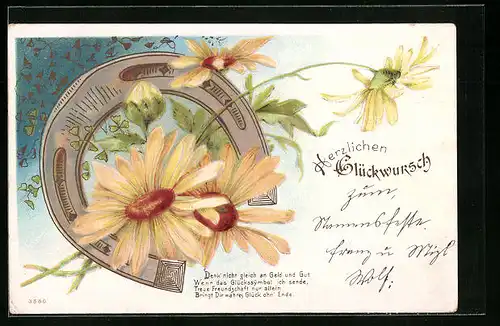 Herzlichen
Glückwunsch
zum
Namensfeste.
Franz u Mizl
Wolf.
Denk' nicht gleich an Geld und Gut
Wenn das Glückssymbol ich sende,
Treue Freundschaft nur allein
Bringt Dir wahres Glück ohn' Ende.